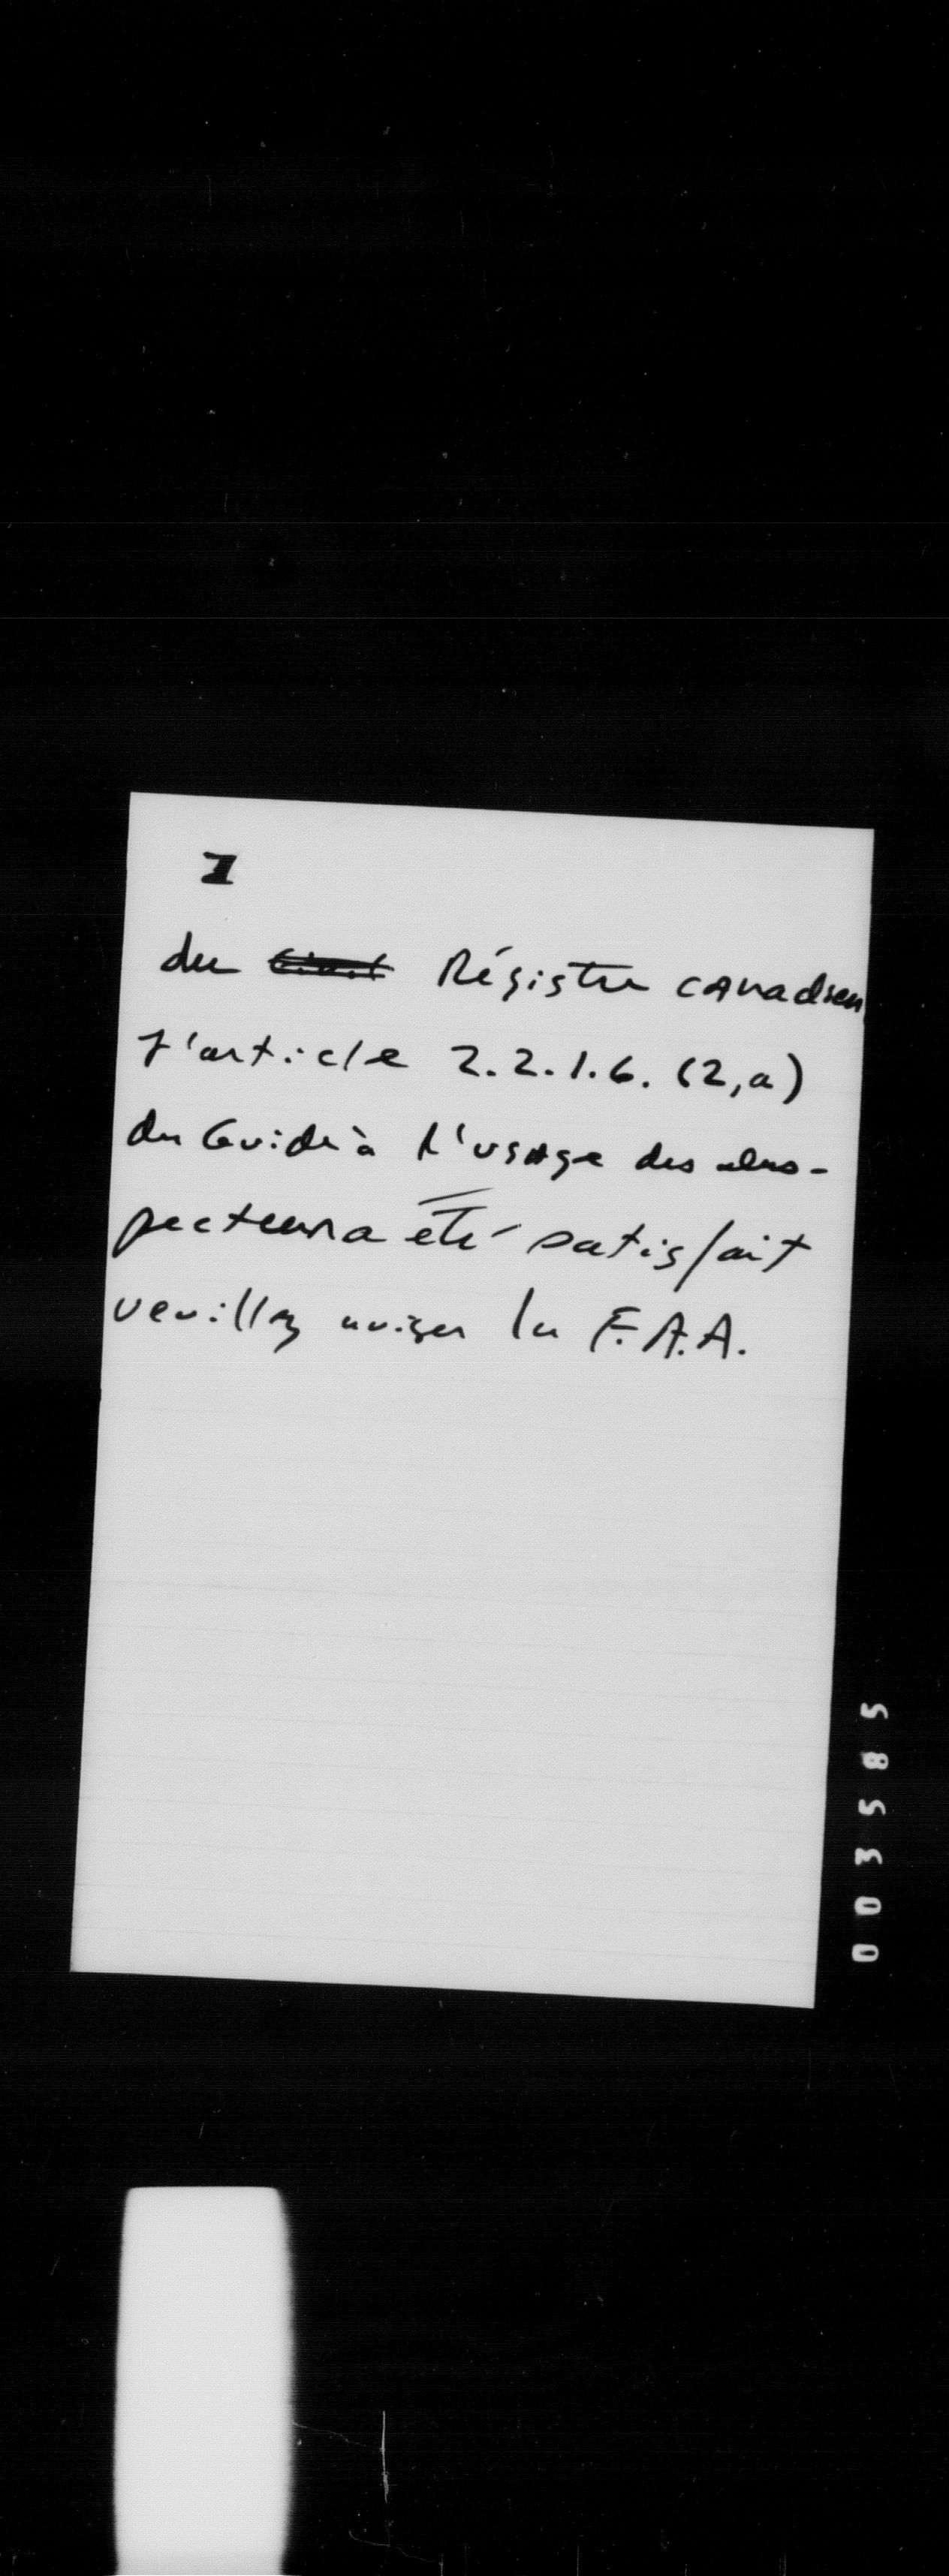 2
du Régistre canadien
l'article 2.2.1.6. (2,a)
du Guide à l'usage des ins-
pecteurs a été satisfait
veuillez aviser la F.A.A.
003585